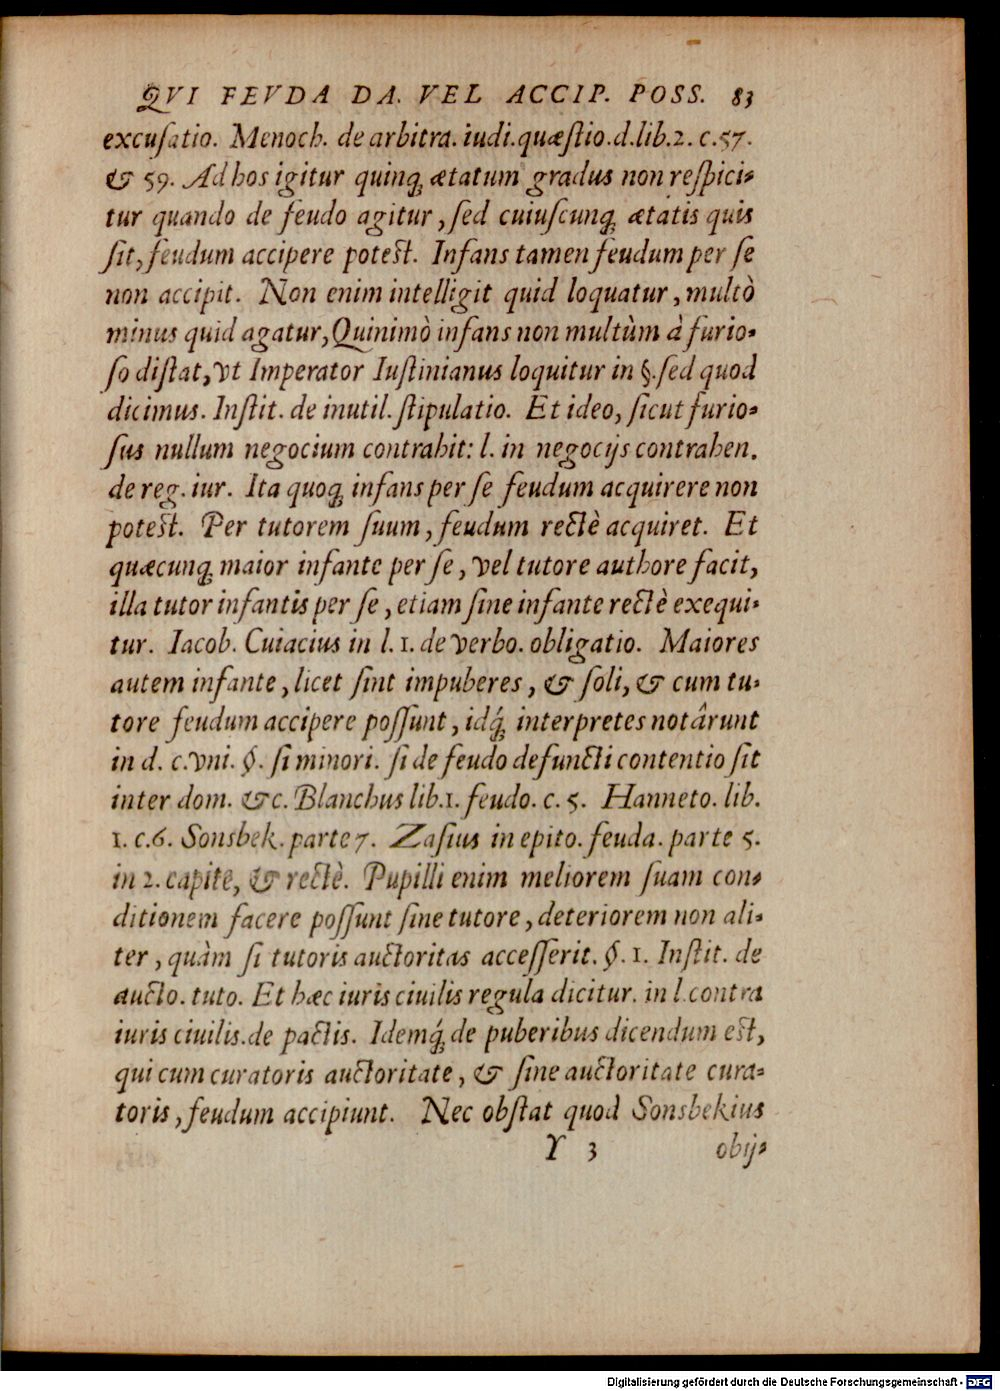 QVI FEVDA DA. VEL ACCIP. POSS. 83
excuſatio. Menoch. de arbitra. iudi. quæſtio. d. lib. 2. c. 57.
& 59. Ad hos igitur quinq; ætatum gradus non reſpici-
tur quando de feudo agitur, ſed cuiuſcunq; ætatis quis
ſit, feudum accipere poteſt. Infans tamen feudum per ſe
non accipit. Non enim intelligit quid loquatur, multò
minus quid agatur, Quinimò infans non multùm à furio-
ſo diſtat, vt Imperator Iuſtinianus loquitur in §. ſed quod
dicimus. Inſtit. de inutil. ſtipulatio. Et ideo, ſicut furio-
ſus nullum negocium contrahit: l. in negocijs contrahen.
de reg. iur. Ita quoq; infans per ſe feudum acquirere non
poteſt. Per tutorem ſuum, feudum rectè acquiret. Et
quæcunq; maior infante per ſe, vel tutore authore facit,
illa tutor infantis per ſe, etiam ſine infante rectè exequi-
tur. Iacob. Cuiacius in l. 1. de verbo. obligatio. Maiores
autem infante, licet ſint impuberes, & ſoli, & cum tu-
tore feudum accipere poſſunt, idq́; interpretes notârunt
in d. c. vni. §. ſi minori. ſi de feudo defuncti contentio ſit
inter dom. &c. Blanchus lib. 1. feudo. c. 5. Hanneto. lib.
1. c. 6. Sonsbek. parte 7. Zaſius in epito. feuda. parte 5.
in 2. capite, & rectè. Pupilli enim meliorem ſuam con-
ditionem facere poſſunt ſine tutore, deteriorem non ali-
ter, quàm ſi tutoris auctoritas acceſſerit. §. 1. Inſtit. de
aucto. tuto. Et hæc iuris ciuilis regula dicitur. in l. contra
iuris ciuilis. de pactis. Idemq́; de puberibus dicendum eſt,
qui cum curatoris auctoritate, & ſine auctoritate cura-
toris, feudum accipiunt. Nec obſtat quod Sonsbekius
Y 3 obij-
Digitalisierung gefördert durch die Deutsche Forschungsgemeinschaft - DFG